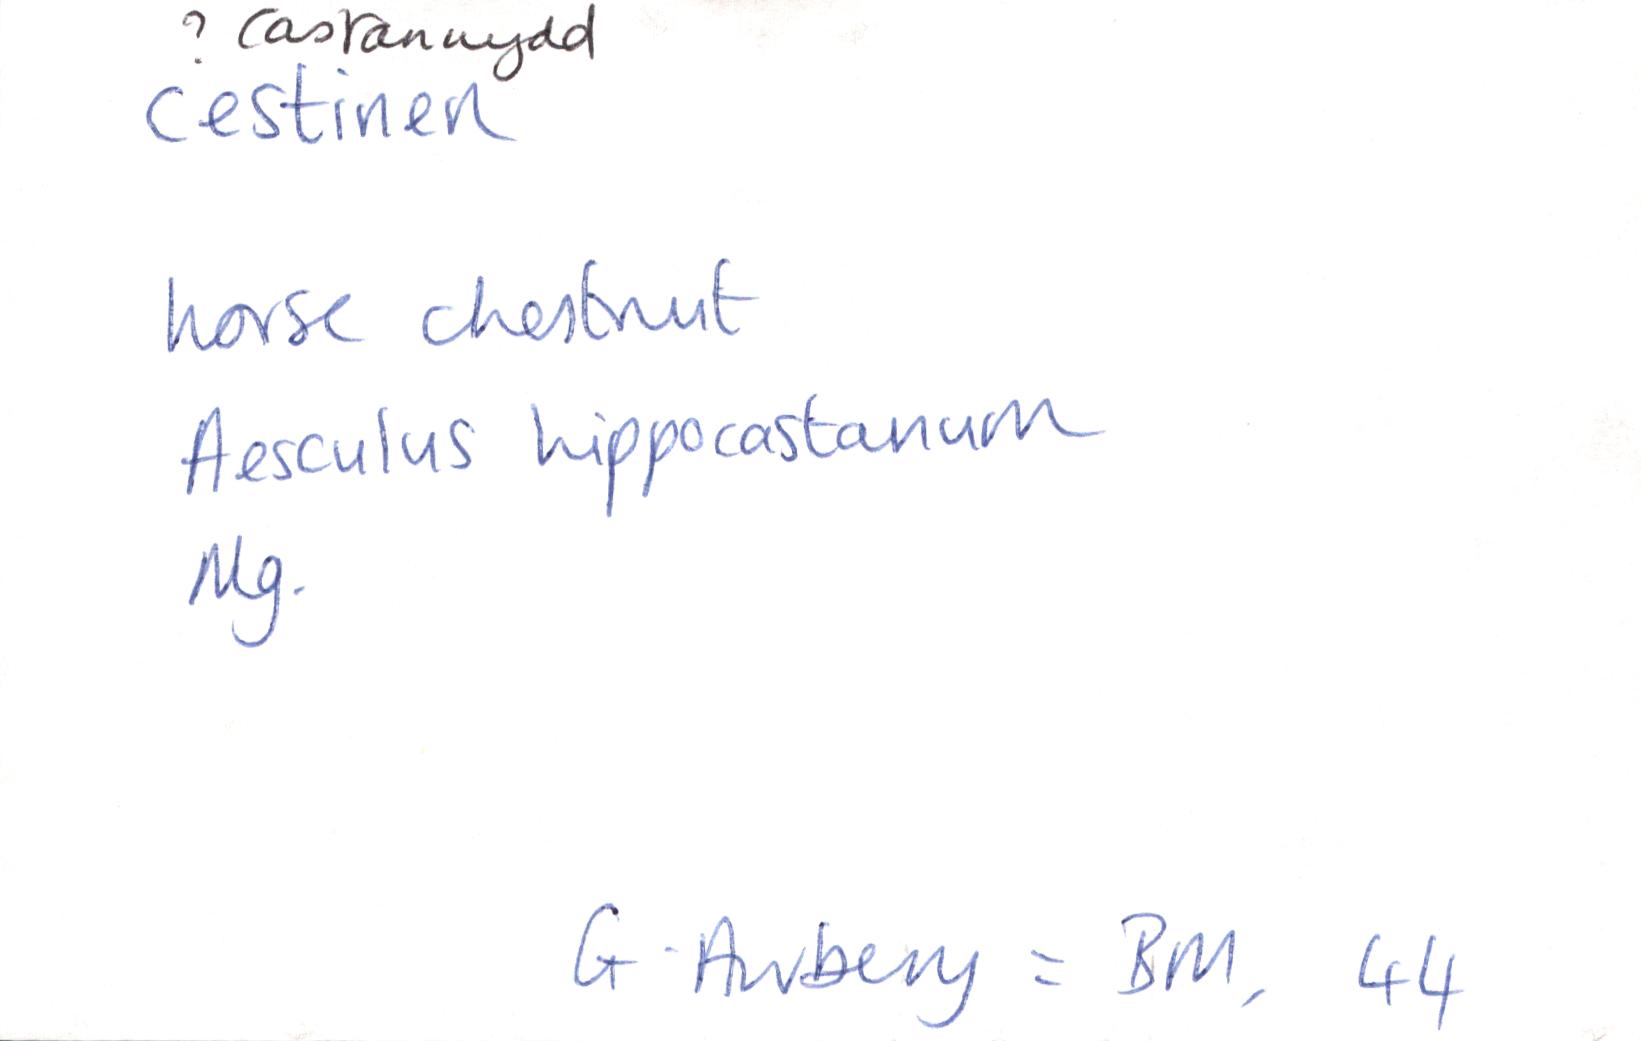 ? Castanwydd
cestinen
horse chestnut
Aesculus hippocastanum
Mg.
G. Awbery = BM, 44